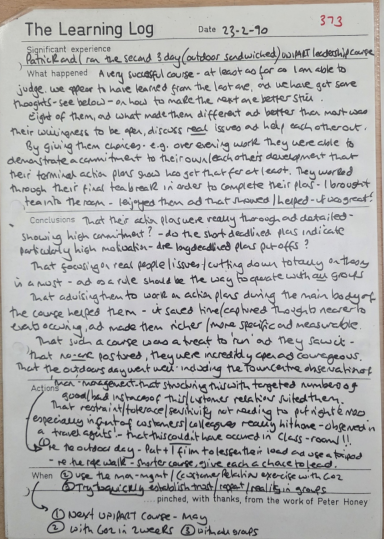 373
The Learning Log Date 23-2-90
Significant experience
Patrick and I ran the second 3 day (outdoor sandwiched) leadership course
What happened A very successful course - at least as far as I am able to
judge. we appear to have learned from the last one, and we have got some
thoughts - see below - on how to make the next one better still.
Eight of them, and what made them different and better than most was
their willingness to be open, discuss real issues and help each other out.
By giving them choices - e.g. over evening work they were able to
demonstrate a commitment to their own/each others development that
their terminal action plans show has got that far at least. They worked
through their final tea break in order to complete their plans - I brought
tea into the room - I enjoyed them and that showed/helped - it was great!
Conclusions That their action plans were really thorough and detailed -
showing high commitment? - do the short deadlined plans indicate
particularly high motivation - are long deadlined plans put offs?
That focusing on real people/issues/cutting down totally on theory
is a must - and as a rule should be the way to operate with all groups
That advising them to work on action plans during the main body of
the course helped them - it saved time/captured thoughts nearer to
events occuring, and made them richer/more specific and measurable.
That such a course was a treat to run and they saw it -
that no-one postured, they were incredibly open and courageous.
That the outdoors day went well - including the Town centre observation of
man-management - that structuring this with targeted numbers of
Actions good/bad instances of this/customer relations suited them.
That restraint/tolerance/sensitivity not needing to put right a mess
especially in front of customers/colleagues really hit home - observed in
a travel agents - that this couldn't have occured in class-room!!
① re the outdoor day - Put 1 film to lessen their load and use a tripod
- re the rope walk - shorter course, give each a chance to lead.
When ② use the man-mgnt/customer relations exercise with Co2
③ Try to quickly establish trust/respect/reality in groups
....pinched, with thanks, from the work of Peter Honey
① Next course - May
② with Co2 in 2 weeks ③ with all groups